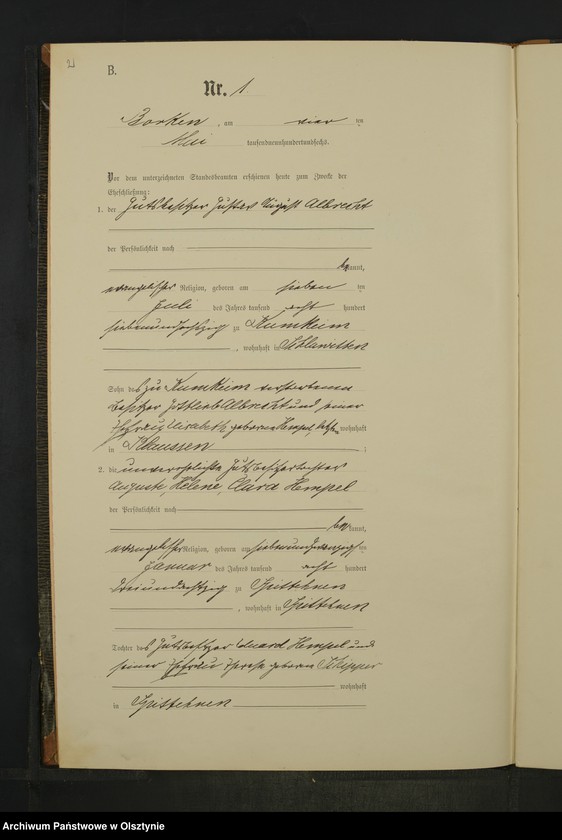 B.
Nr. 1
Borken, am vier ten
Mai tausendneunhundertundsechs.
Vor dem unterzeichneten Standesbeamten erschienen heute zum Zwecke der
Eheschließung:
1. der Gutsbesitzer Gustav August Albrecht
der Persönlichkeit nach
be kannt,
evangelischer Religion, geboren am sieben ten
Juli des Jahres tausend acht hundert
siebenund zu Kumkeim
, wohnhaft in Schlawitten
Sohn des zu Kumkeim verstorbenen
Besitzer Gottlieb Albrecht und seiner
Ehefrau Elisabeth geborene Hempel, wohnhaft
in Klaussen ;
2. die unverehelichte Gutsbesitzertochter
Auguste, Helene, Clara Hempel
der Persönlichkeit nach
be kannt,
evangelischer Religion, geboren am siebenundzwanzigsten
Januar des Jahres tausend acht hundert
dreiundachtzig zu Grittehnen
, wohnhaft in Grittehnen
Tochter des Gutsbesitzer Eduard Hempel und
seiner Ehefrau Therese geborene Schipper
wohnhaft
in Grittehnen
Archiwum Państwowe w Olsztynie